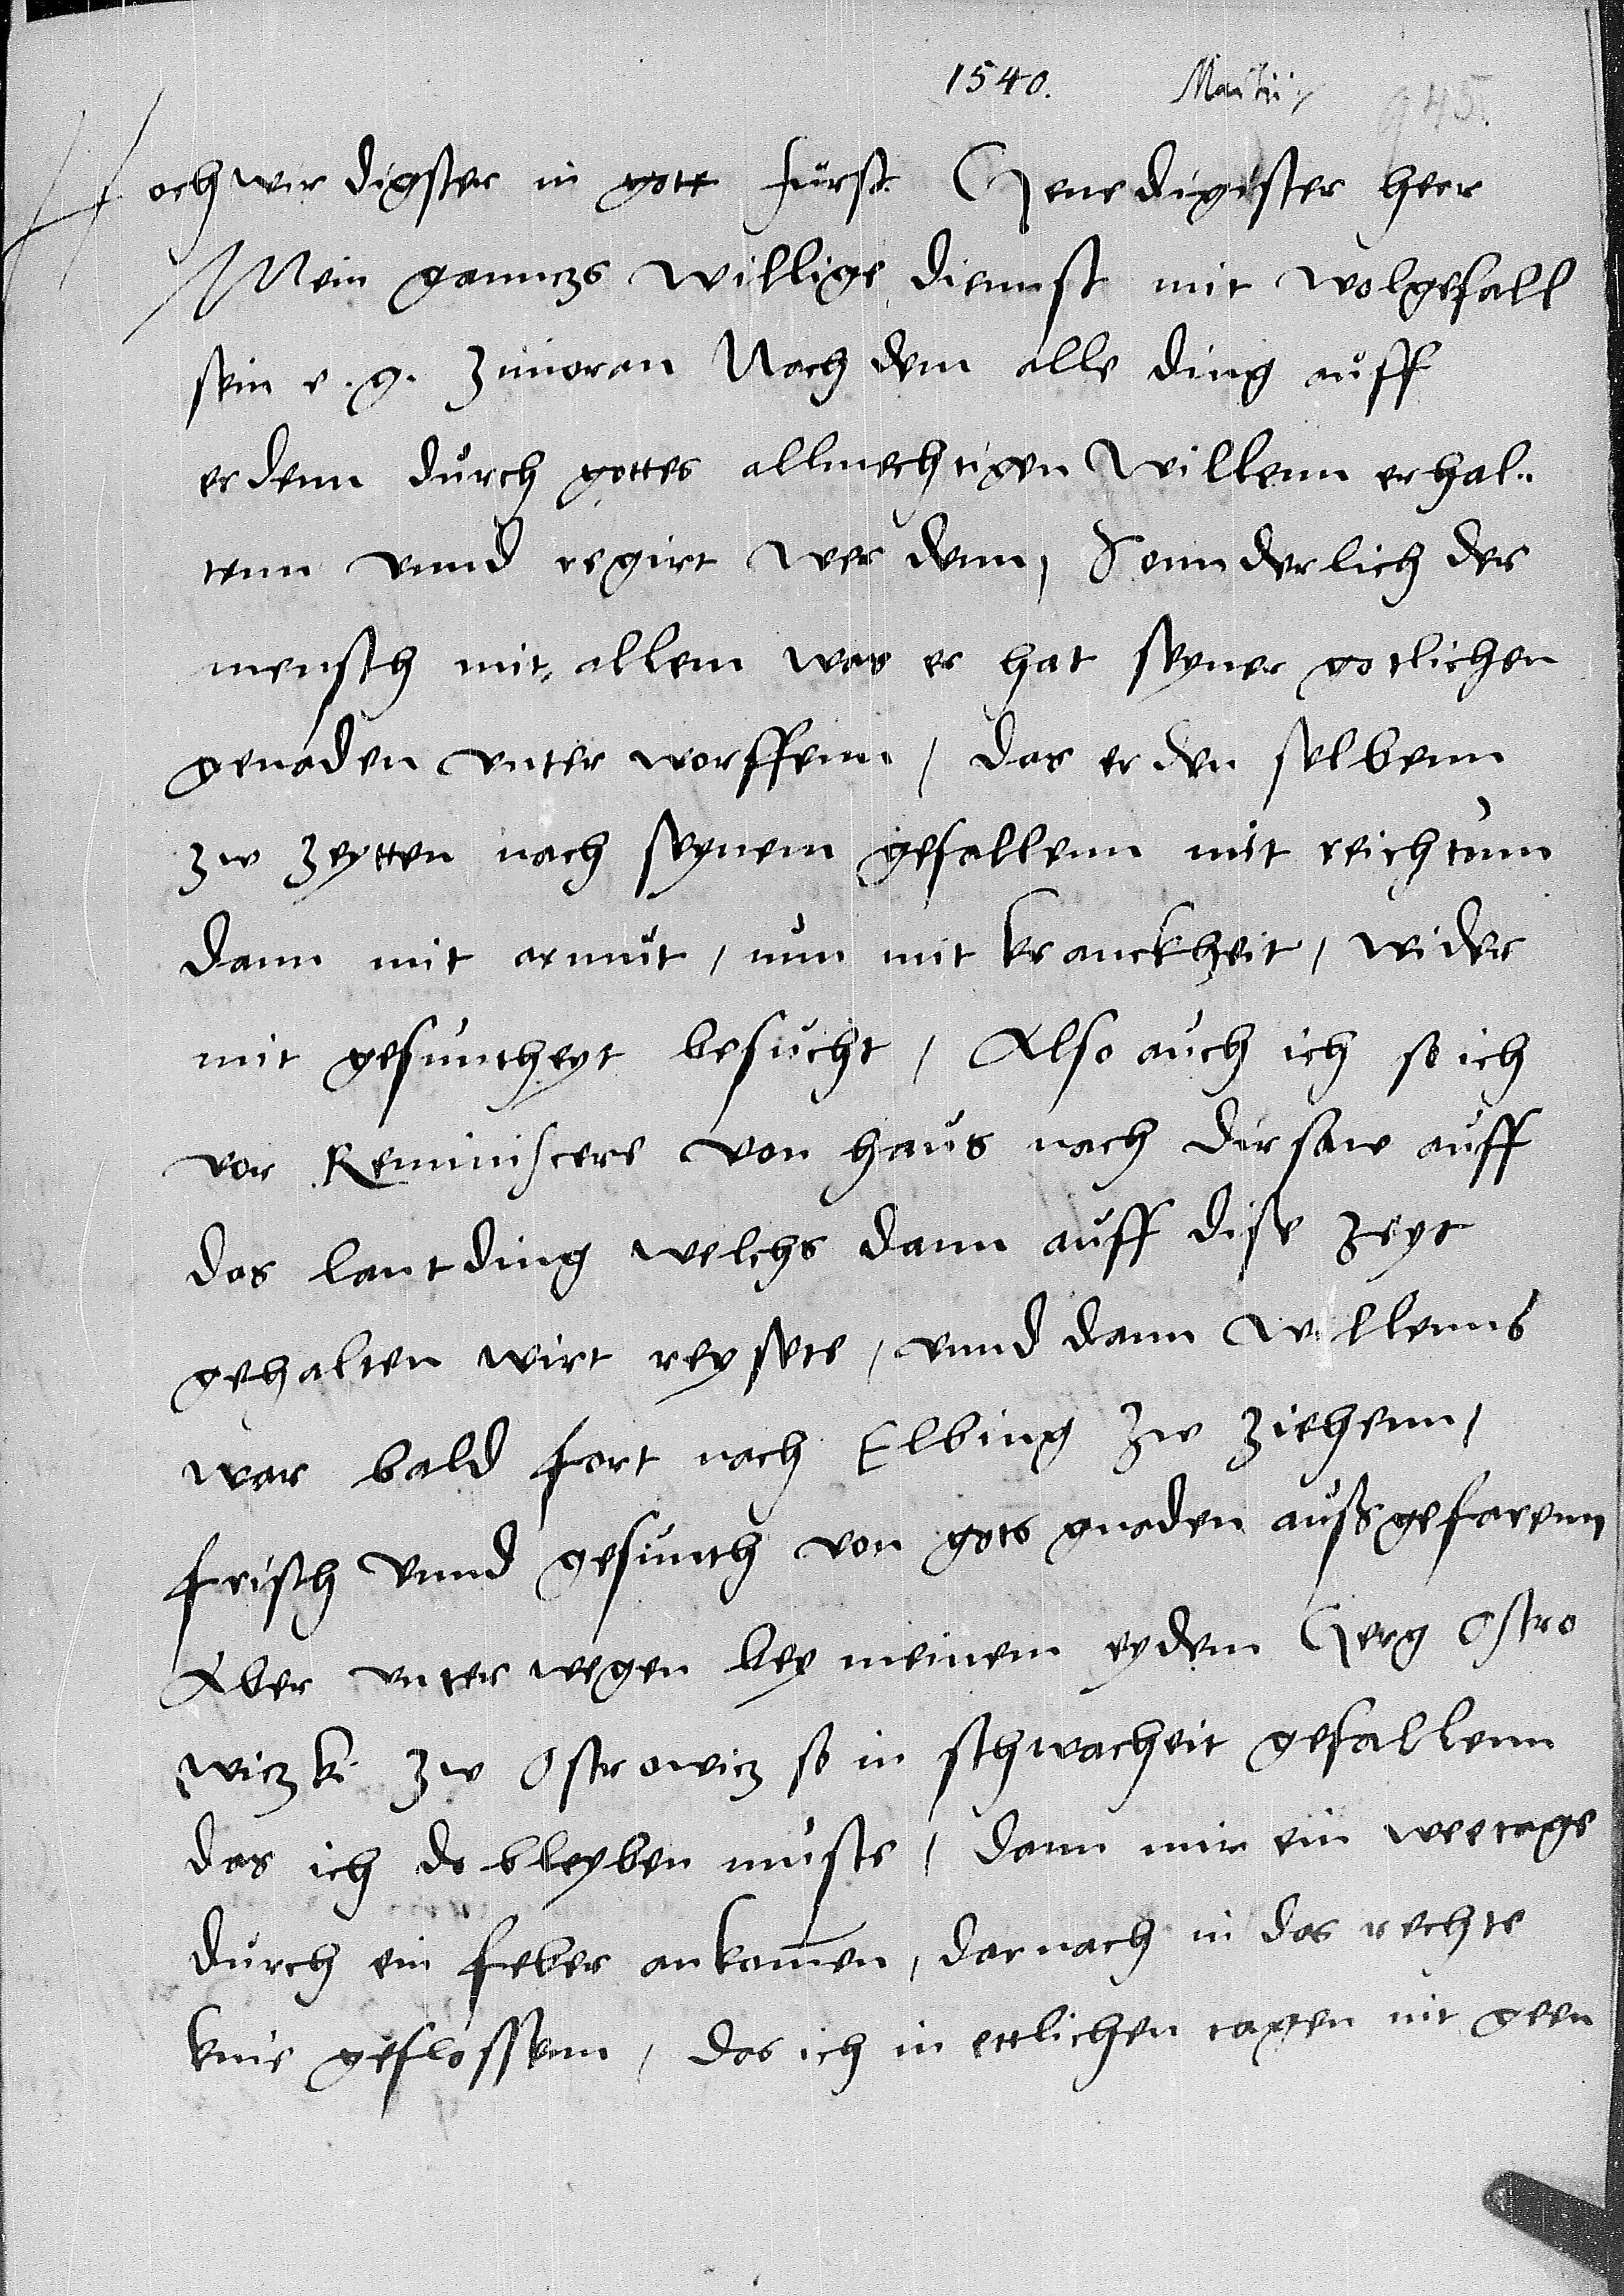 1540. Martii
945.
Hochwirdigster in gott fürst Genedigister herr
Mein gannczs willige dinnst mit wolgefall
sein e. g. zuuoran Nach dem alle ding auff
erdenn durch gottes allmechtigen willenn erhal..
tenn vnnd regirt werdenn, Sonnderlich der
mensch mit allem was er hat seyner gotlichen
genaden vnterworffenn, das er den selbenn
zw zeytten nach seynem gefallenn mit reichtum
dann mit armut, nun mit kranckheit, wider
mit gesuntheyt besucht, Also auch ich so ich
vor Reminiscere von haus nach Dirsaw auff
das lantding welchs dann auff dise zeyt
gehalten wirt reysete, vnnd dann willenns
war bald fort nach Elbing zw ziehenn,
frisch vnnd gesunth von gots gnaden aussgefarenn
Aber vnterwegen bey meinem eydem Gerg Ostro
wiczk zw Ostrowicz so in schwacheit gefallenn
das ich do bleyben muste, dann mir ein weetage
durch ein feber ankomen, darnach in das rechte
knie geflossenn, das ich in ettlichen tagen nit geen